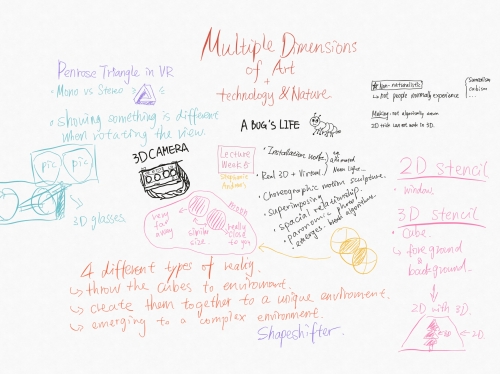 Multiple Dimensions
of Art
+
technology & Nature
Penrose Triangle in VR
• Mono vs Stereo
• Showing something is different
when rotating the view.
pic
pic
3D glasses
3D CAMERA
Lecture
Week 8
A BUG'S LIFE
• Installation work
eg. animated
Neon light
• Real 3D + Virtual
• Choreographic motion sculpture.
• Superimposing
• spacial relationship.
• panoramic photo
• emerges
Moon
very
far
away
similar
size
really
close
to you
4 different types of reality.
↳ throw the cubes to enviroment.
↳ create them together to a unique enviroment.
↳ emerging to a complex environment.
Shapeshifter.
Non-naturalistic
↳ not people normally experience
Surrealism
cubism
...
Making: not
2D trick cannot work in 3D.
2D stencil
• window.
3D stencil
• Cube.
↳ foreground
& background.
2D with 3D.
3D
2D